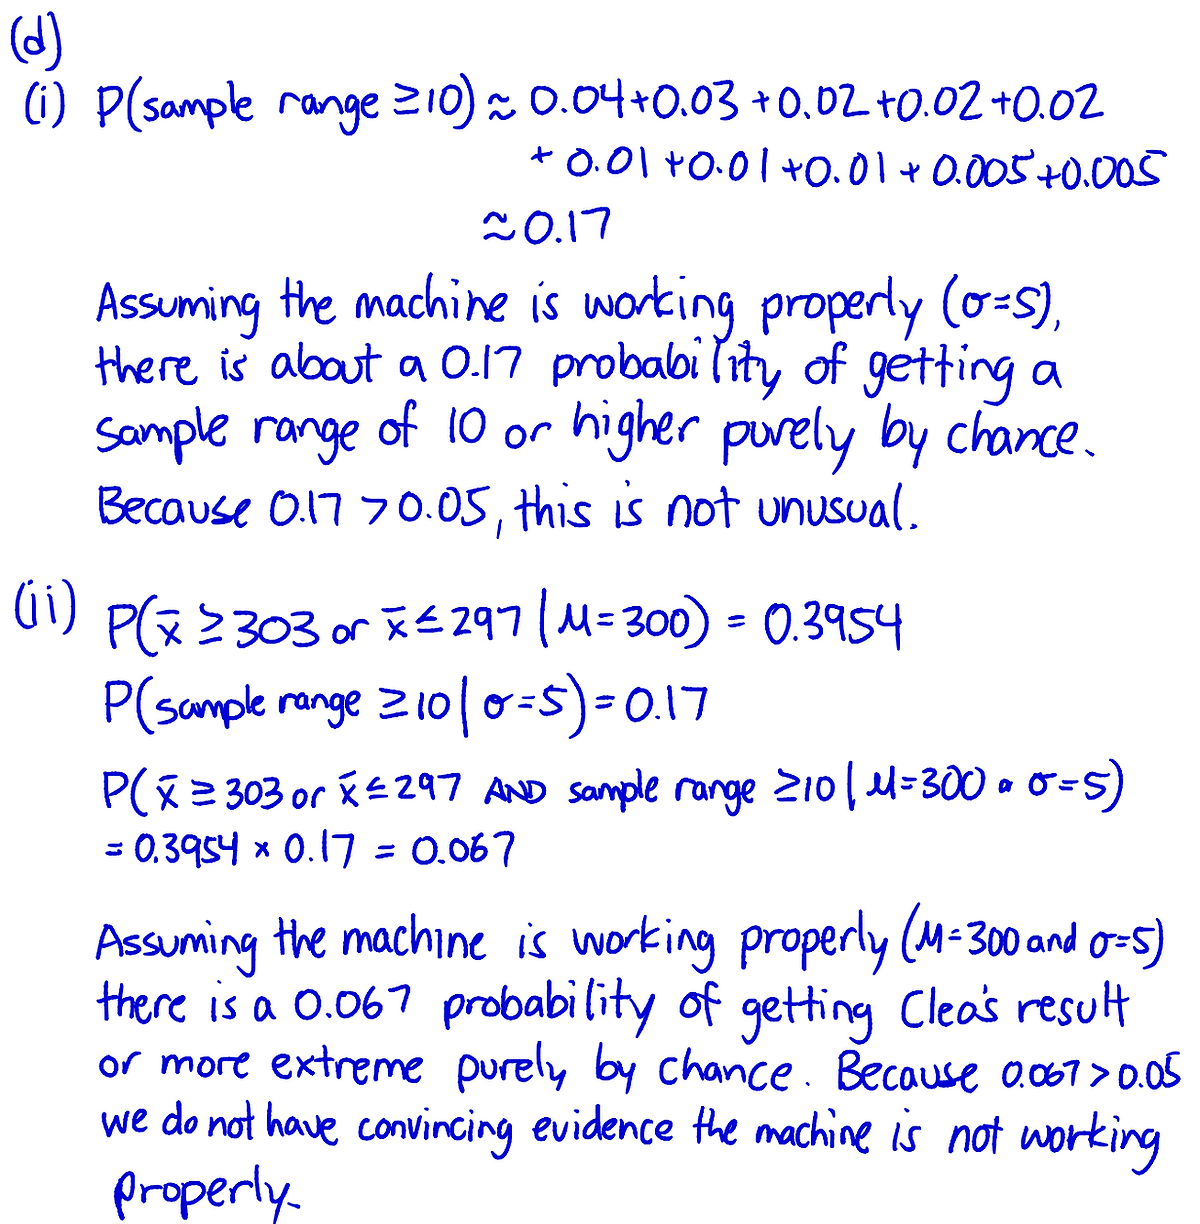 (d)
(i) P(sample range ≥10) ≈ 0.04+0.03+0.02+0.02+0.02
+ 0.01+0.01+0.01+0.005+0.005
≈0.17
Assuming the machine is working properly (σ=5),
there is about a 0.17 probability of getting a
sample range of 10 or higher purely by chance.
Because 0.17 >0.05, this is not unusual.
(ii) P(x̄ ≥303 or x̄ ≤297 | μ=300) = 0.3954
P(sample range ≥10 | σ=5)=0.17
P(x̄ ≥303 or x̄ ≤297 AND sample range ≥10 | μ=300 σ=5)
= 0.3954 × 0.17 = 0.067
Assuming the machine is working properly (μ=300 and σ=5)
there is a 0.067 probability of getting Clea's result
or more extreme purely by chance. Because 0.067>0.05
we do not have convincing evidence the machine is not working
properly.